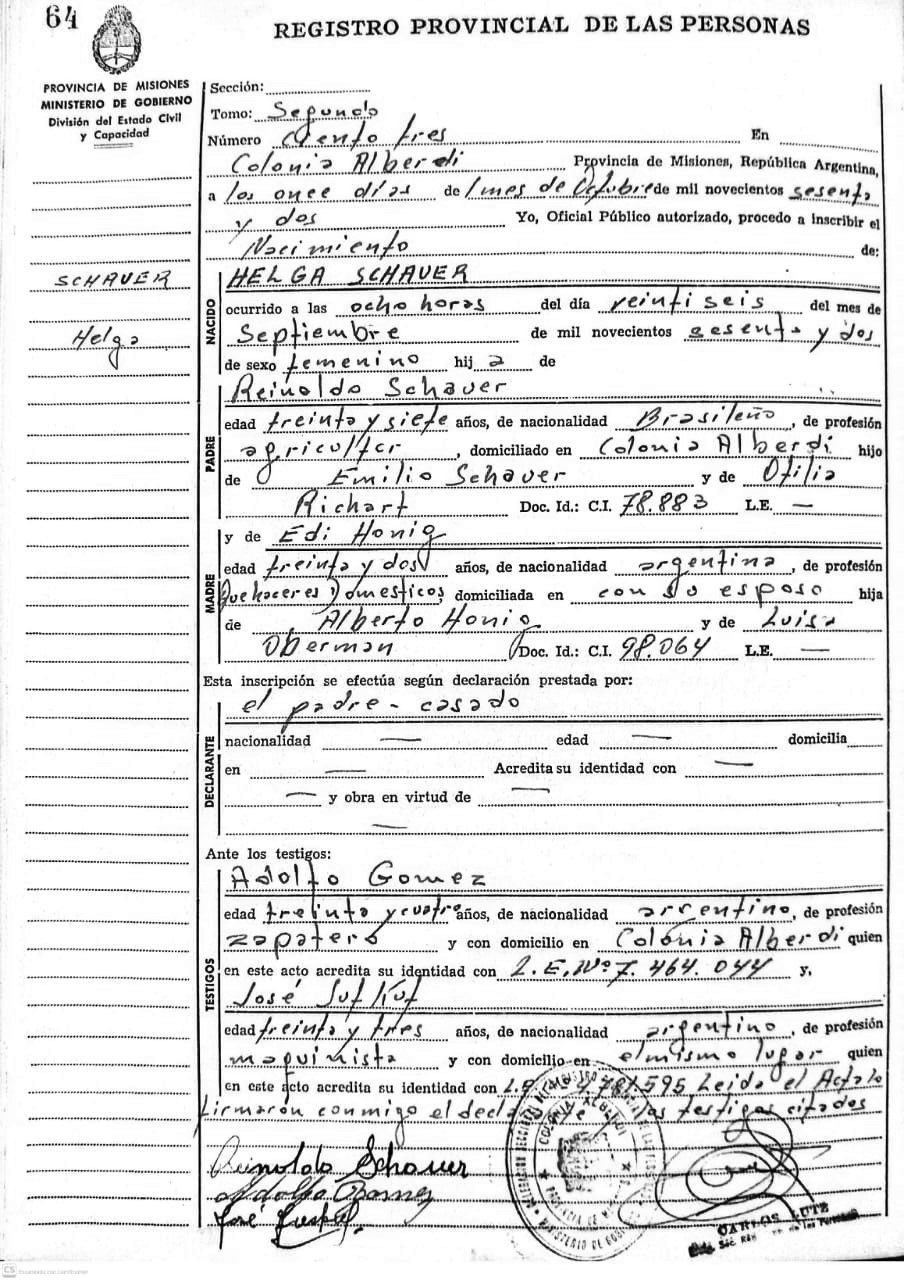 64
REGISTRO PROVINCIAL DE LAS PERSONAS
PROVINCIA DE MISIONES
MINISTERIO DE GOBIERNO
División del Estado Civil
y Capacidad
SCHAUER
Helga
Sección:
Tomo: Segundo
Número Ciento tres En
Colonia Alberdi Provincia de Misiones, República Argentina,
a los once días de l mes de Octubre de mil novecientos sesenta
y dos Yo, Oficial Público autorizado, procedo a inscribir el
Nacimiento de:
NACIDO
HELGA SCHAUER
ocurrido a las ocho horas del día veintiseis del mes de
Septiembre de mil novecientos sesenta y dos
de sexo femenino hij a de
PADRE
Reinoldo Schauer
edad treinta y siete años, de nacionalidad Brasileño, de profesión
agricultor, domiciliado en Colonia Alberdi hijo
de Emilio Schauer y de Otilia
Richart Doc. Id.: C.I. 78.883 L.E. —
MADRE
y de Edi Honig
edad treinta y dos años, de nacionalidad argentina, de profesión
Quehaceres Domesticos, domiciliada en con su esposo hija
de Alberto Honig y de Luisa
Oberman Doc. Id.: C.I. 98.064 L.E. —
Esta inscripción se efectúa según declaración prestada por:
DECLARANTE
el padre - casado
nacionalidad — edad — domicilia
en — Acredita su identidad con —
— y obra en virtud de —
—
Ante los testigos:
TESTIGOS
Adolfo Gomez
edad treinta y cuatro años, de nacionalidad argentino, de profesión
zapatero y con domicilio en Colonia Alberdi quien
en este acto acredita su identidad con L.E. Nº 7.464.044 y,
José
edad treinta y tres años, de nacionalidad argentino, de profesión
maquinista y con domicilio en el mismo lugar quien
en este acto acredita su identidad con L.E. 595 Leida el Acta lo
firmaron conmigo el decla los testigos citados
Reinoldo Schauer
Adolfo Gomez
José
COLONIA ALBERDI
PROVINCIA DE
MINISTERIO DE
CARLOS LUTZ
de las Personas
CS Escaneado con CamScanner